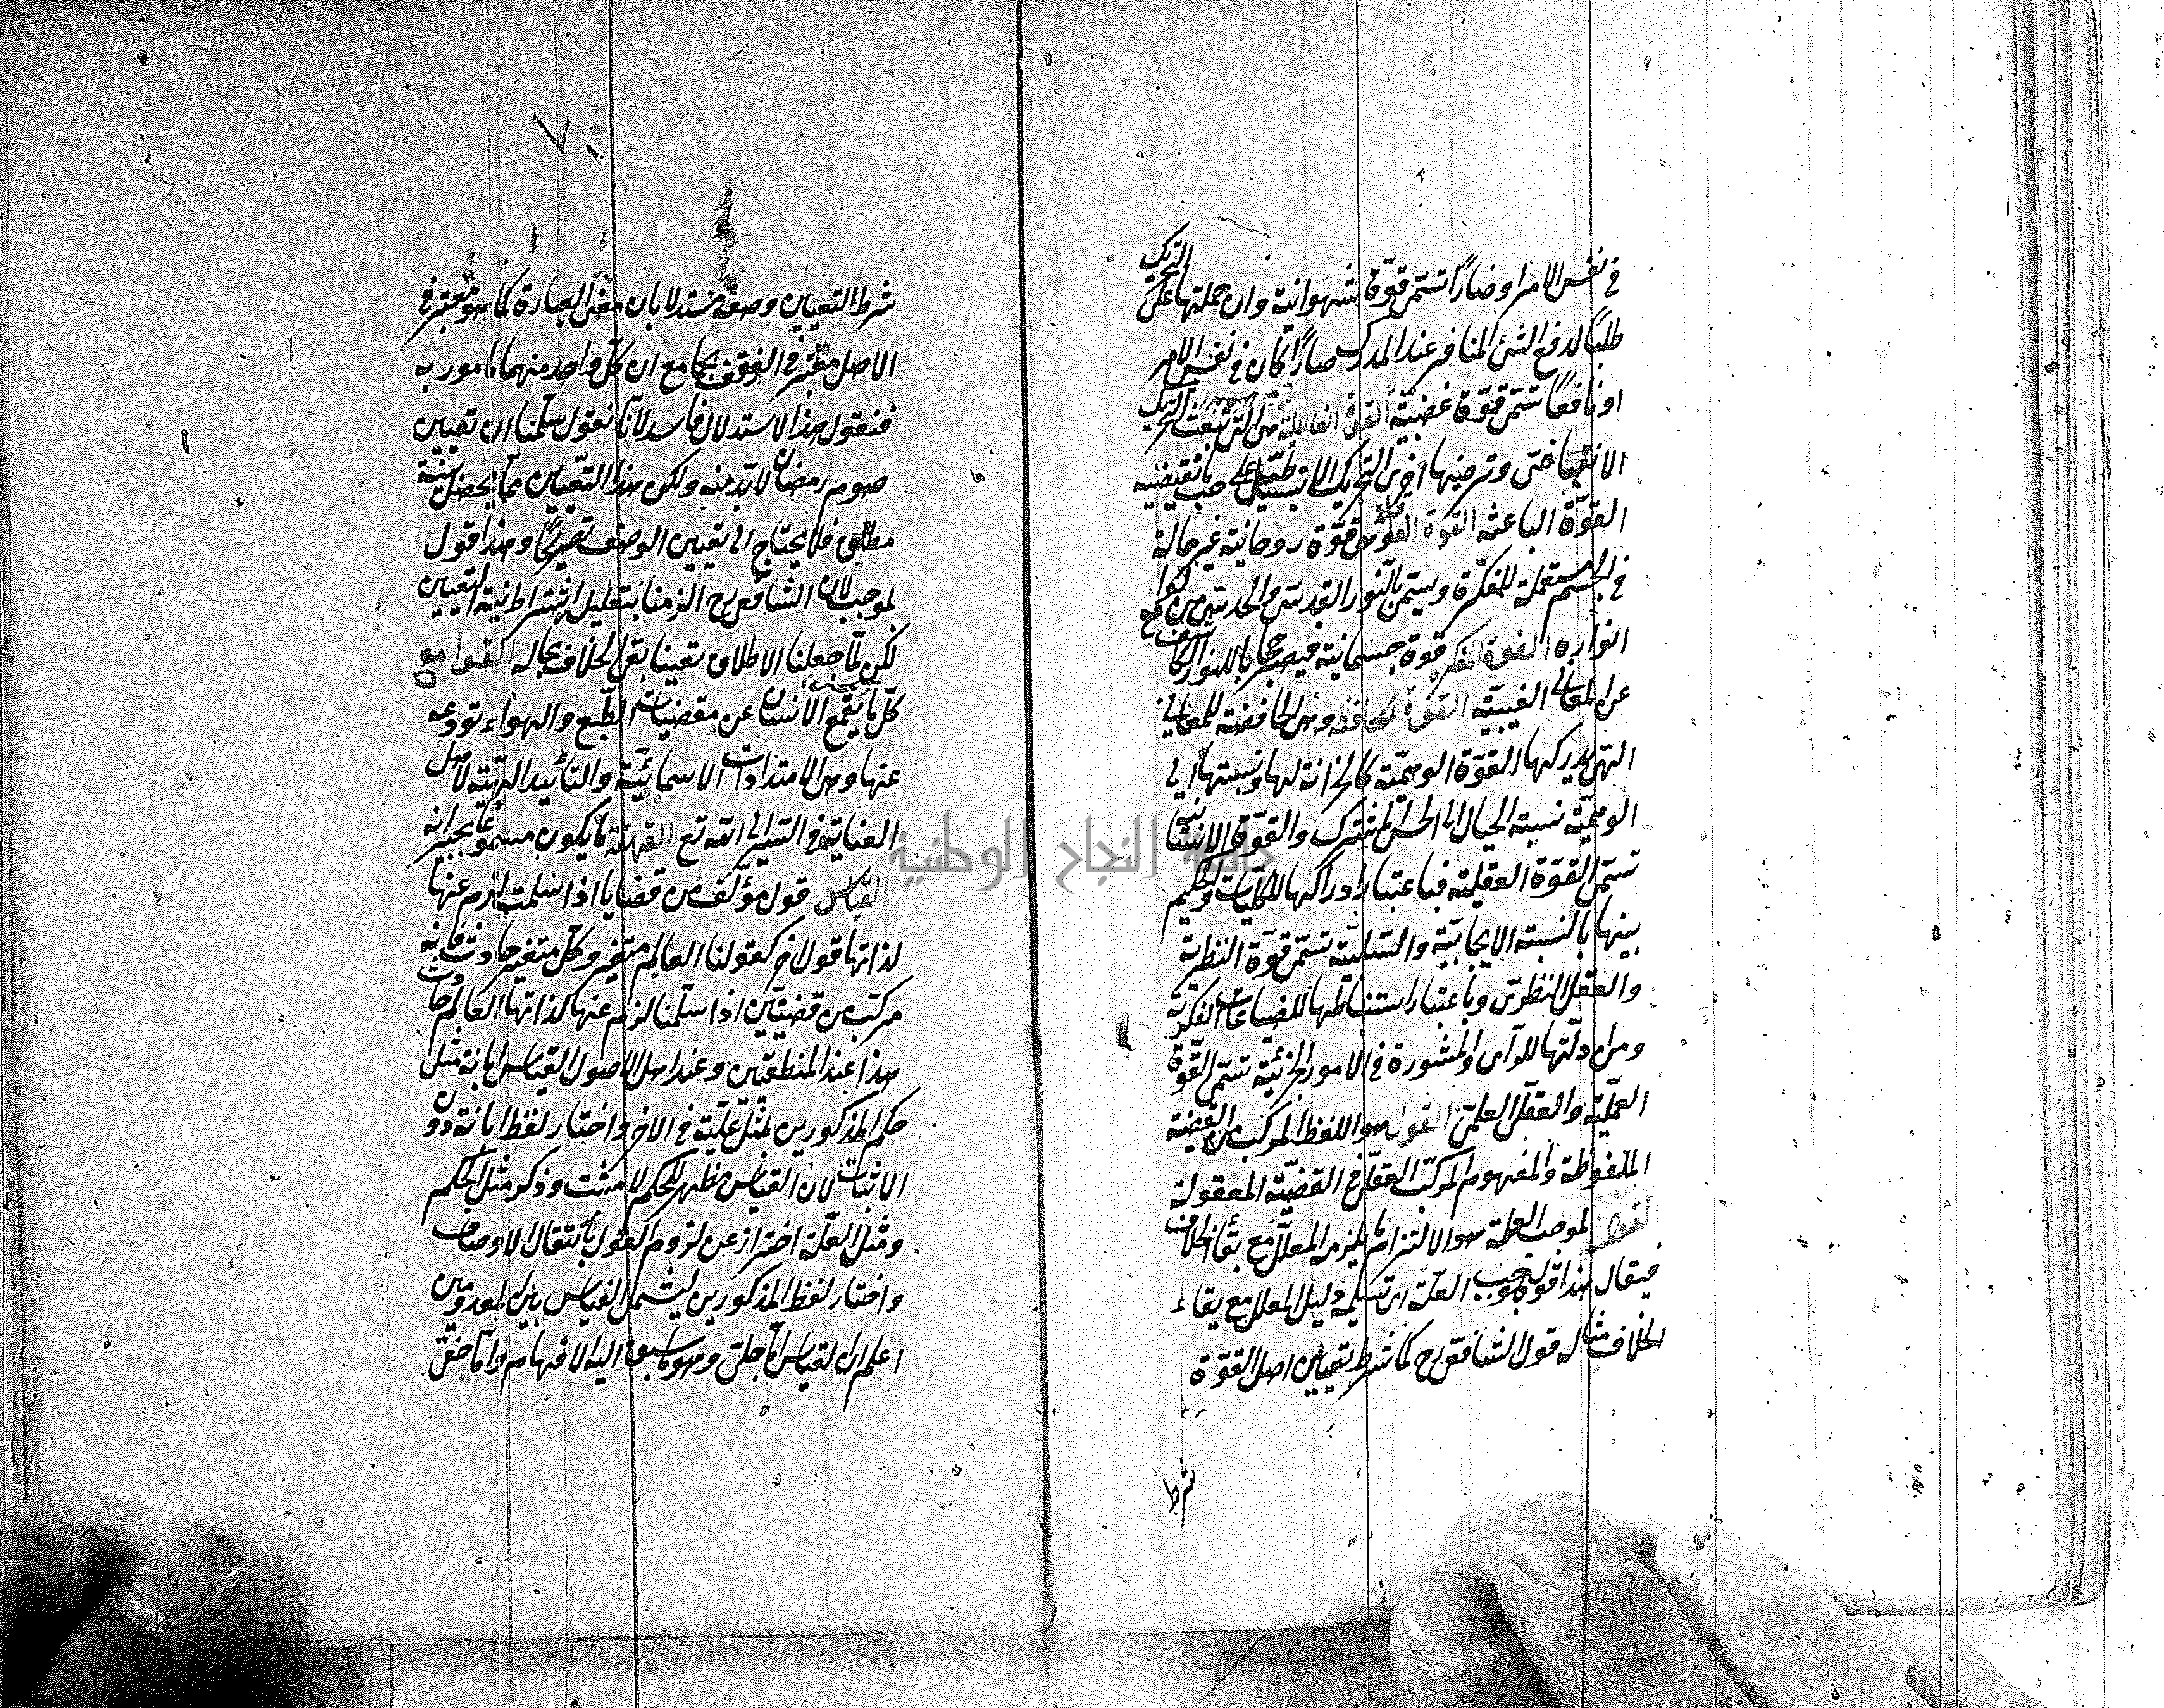 في نفس الامر او ضارًّا تسمّى قوّة شهوانية وان حملتها على التحريك
طلبًا لدفع الشئ المنافر عند المدرك ضارًّا كان في نفس الامر
او نافعًا تسمّى قوّة غضبيّة القوة الفاعلة هي التي تبعث التحريك
الانقباض وترخيها اخرى للتحريك الانبساطي على حسب ما تقتضيه
القوّة الباعثة القوة العاقلة هي قوّة روحانية غير حالة
في الجسم مستعملة للمفكّرة ويسمّى بالنّور القدسيّ والحدس من لوامع
انواره القوة المفكرة قوة جسمانية فيصير حجابا للنور الكاشف
عن المعاني الغيبيّة القوة الحافظة وهى الحافضة للمعاني
التي يدركها القوّة الوهميّة كالخزانة لها ونسبتها الى
الوهميّة نسبة الخيال الى الحسّ المشترك والقوّة الانسانية
تسمّى القوّة العقلية فباعتبار ادراكها للكليات والحكم
بينها بالنسبة الايجابيّة والسّلبيّة تسمّى قوّة النظرية
والعقل النظريّ وباعتبار استنباطها للصناعات الفكرية
ومزاولتها للرأى والمشورة في الامور الجزئيّة تسمّى القوّة
العمليّة والعقل العلميّ القول هو اللفظ المركب من القضية
الملفوظة والمفهوم المركّب العقلي في القضيّة المعقولة
القول بموجب العلة هو الالتزام ما يلزمه المعلّل مع بقاء الخلاف
فيقال هذا قول بموجب العلّة اى تسليم دليل المعلل مع بقاء
الخلاف مثاله قول الشافعيّ رح كما شرط تعيين اصل القوّة
شرط
شرط التعيين وصفه مستدلا بان معنى العبارة كما هو معتبر في
الاصل معتبر في الوقوف بجامع ان كلّ واحد منهما مامور به
فنقول هذا الاستدلال فاسد لانّا نقول سلّمنا ان تعيين
صوم رمضان لا بدّ منه ولكن هذا التّعيين ممّا يحصل بنية
مطلق فلا يحتاج الى تعيين الوصف تصريحًا وهذا قول
بموجب لان الشافعى رح الزمنا بتعليل اشتراط نية التعيين
لكن لمّا جعلنا الاطلاق تعيينا بقى الخلاف بحاله القوامع
كلّ ما يقمع الانسان عن مقضيات الطّبع والهواء تودعه
عنها وهى الامتدادات الاسمائيّة والتأييد الهيّة لاهل
العناية في السّير الى الله تع القهقهة ما يكون مسموعا لجيرانه
القياس قول مؤلّف من قضايا اذا سلمت لزم عنها
لذاتها قول اخر كقولنا العالم متغير وكلّ متغير حادث فانه
مركّب من قضيّتين اذا سلّمنا لزم عنها لذاتها العالم حادث
هذا عند المنطقيّين وعند اهل الاصول القياس ابانة مثل
حكم المذكورين بمثل علّته في الاخر واختار لفظ ابانة دون
الاثبات لان القياس مظهر للحكم لا مثبت وذكر مثل الحكم
ومثل العلّة احتراز عن لزوم القول بانتقال الاوصاف
واختار لفظ المذكورين ليشمل القياس بين المعدومين
اعلم ان القياس امّا جليّ وهو ما سبق اليه الافهام وامّا خفيّ